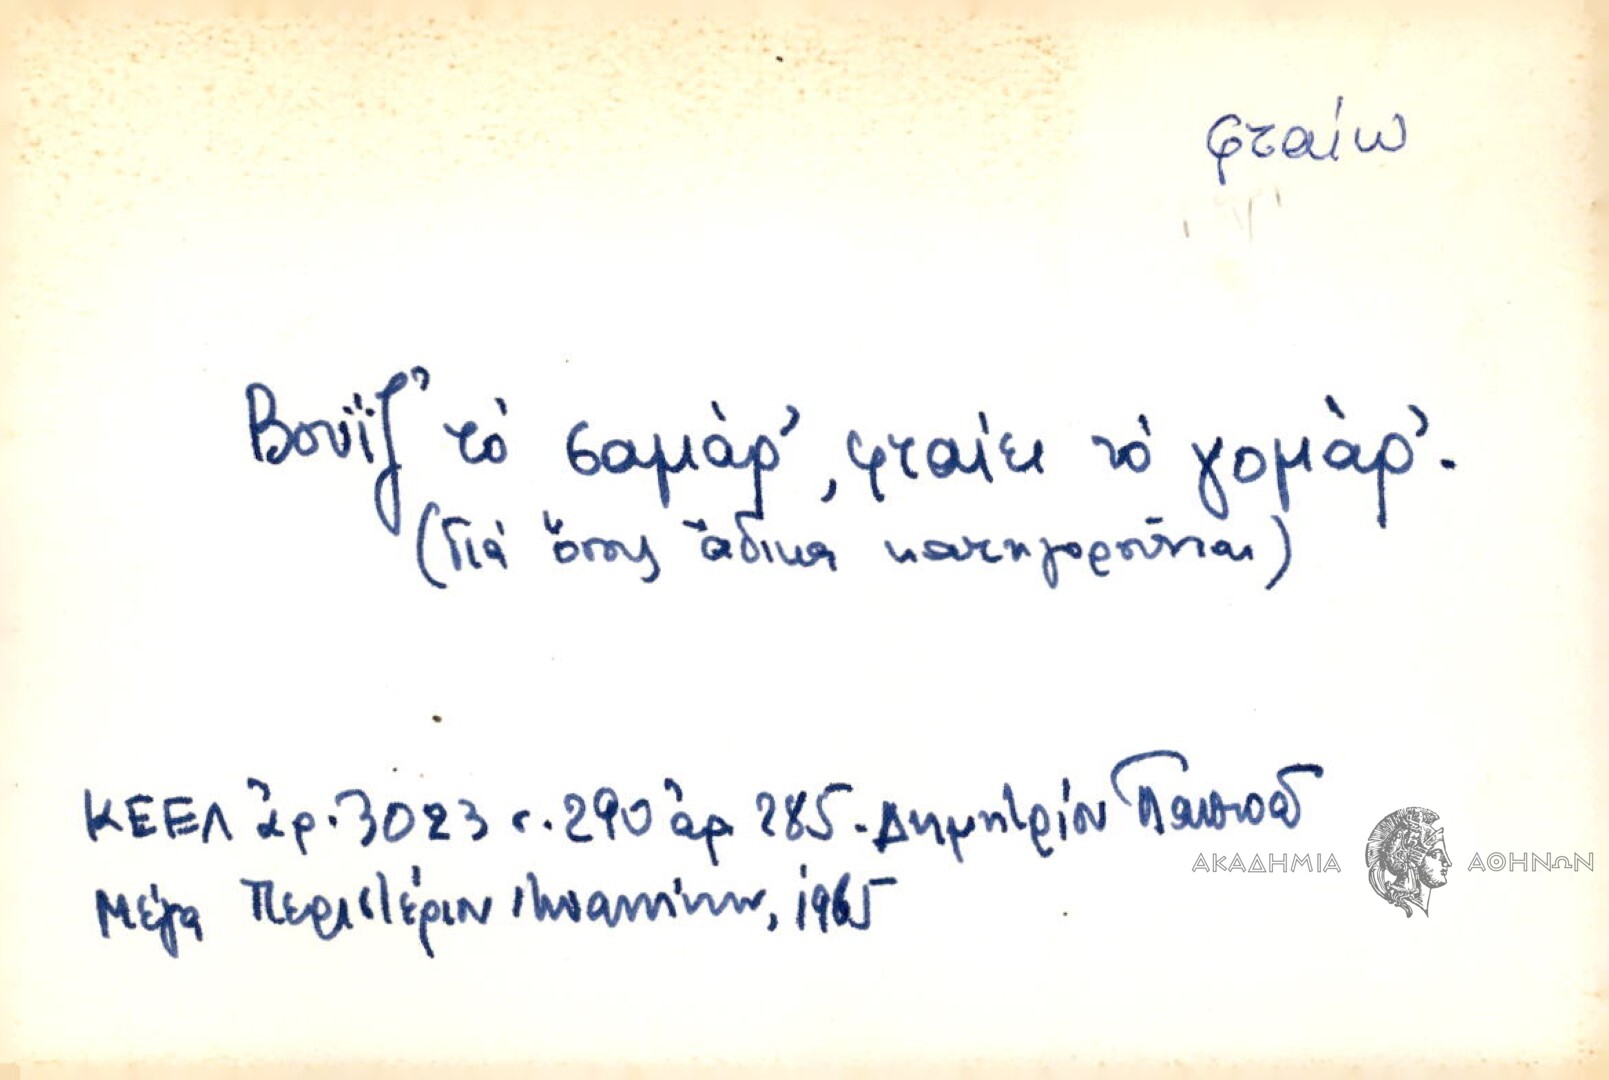 φταίω
Βουΐζ' τὸ σαμὰρ', φταίει τὸ γομὰρ'.
(Γιὰ ὅσους ἄδικα κατηγοροῦνται)
ΚΕΕΛ ἀρ. 3023 σ. 290 ἀρ. 285. Δημητρίου
Μέγα Περιστέριον Ἰωαννίνων, 1965
ΑΚΑΔΗΜΙΑ ΑΘΗΝΩΝ